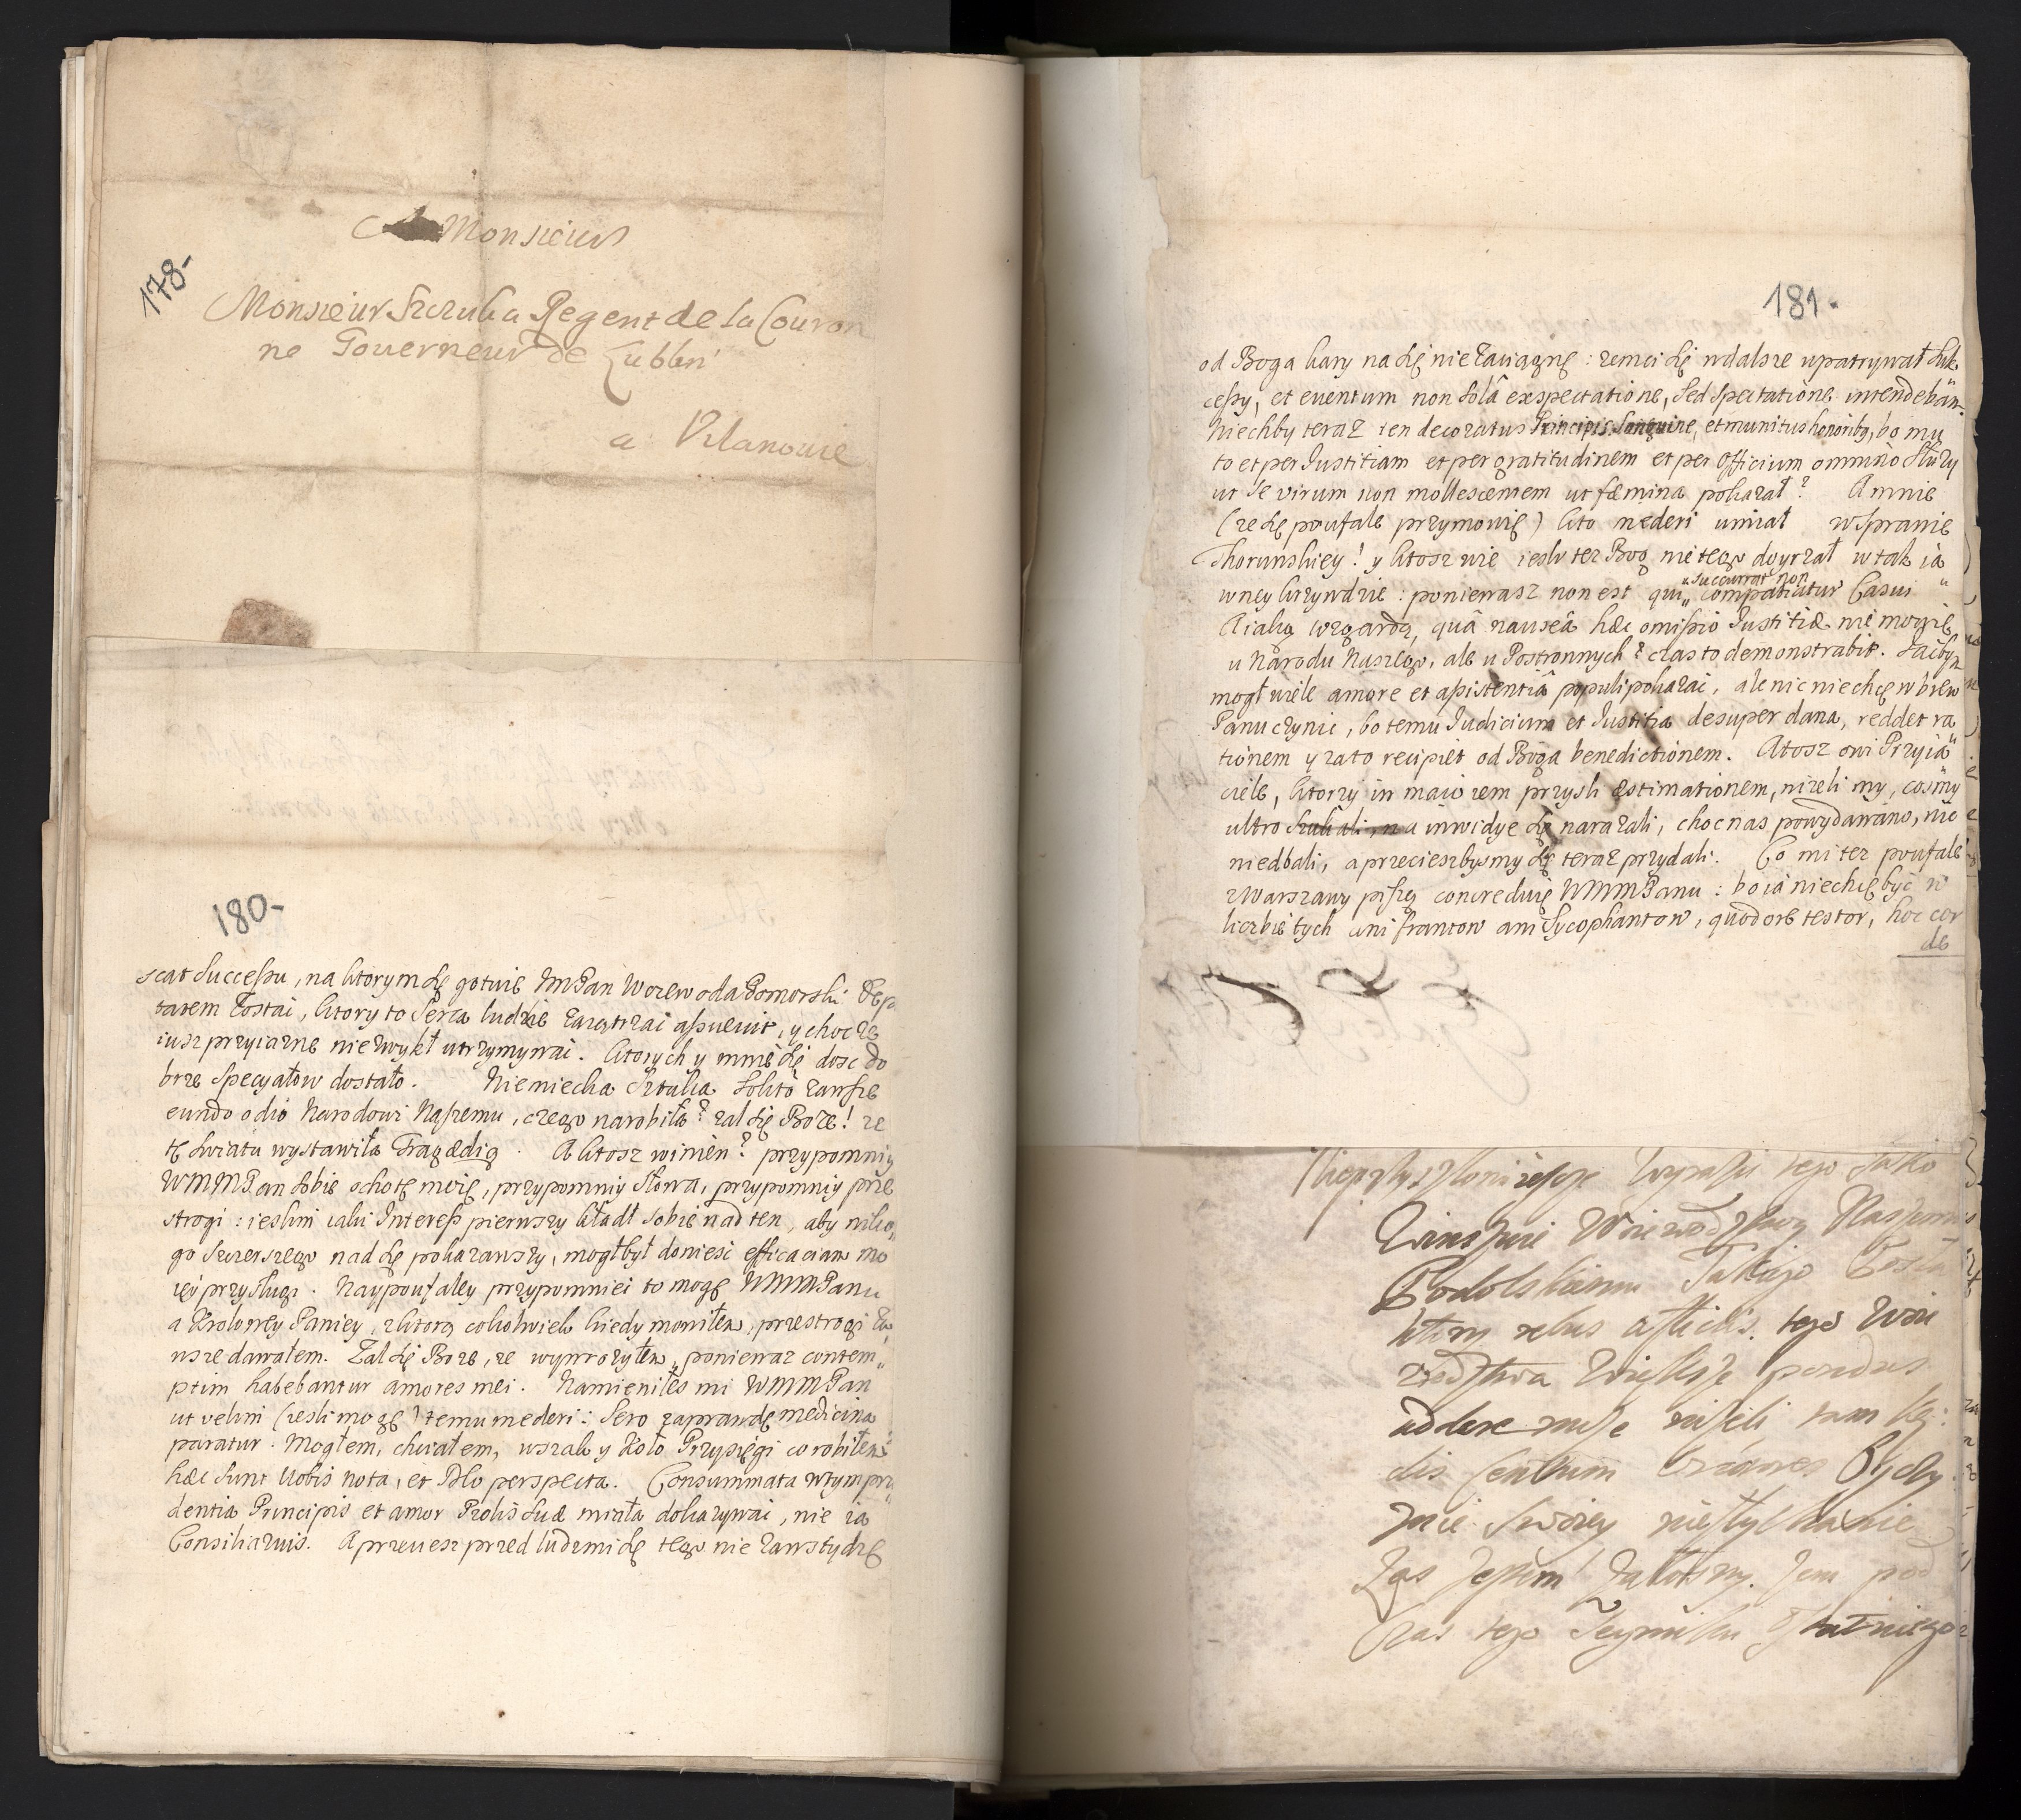 178-
A Monsieur
Monsieur Szczuka Regent de la Couron
ne Gouverneur de Lublin
a Vilanowie
180-
scat Successu, na ktorym się gotuie ImPan Woiewoda Pomorski
zostai, ktory to Serca ludzkie assuevit, y choc ze
iusz przyiazne niezwykł utrzymywai. ktorych y mnie się dosc do
brze specyałow dostało. Niemiecka Sztuka solito
eundo odio Narodowi Naszemu, czego narobiła? zal się Boze! ze
tę swiatu wystawiła Tragædią. A ktosz winien? przypomniy
WMMPan sobie ochotę moię, przypomniy słowa, przypomniy prze
strogi: iesłim iaki Interess pierwszy kładł sobie nad ten, aby niko„
go szczerszego nad się pokazawszy, mogł był doniesc efficaciam mo
iey przysługi. Naypoufaley przypomniec to mogę WMMPanu
a Krolowey Paniey, z ktorą cokolwiek kiedy moniłem, przestrogi za„
wsze dawałem. Zal się Boze, ze wyprorzyłem, poniewaz contem„
ptim habebantur amores mei. Namieniłes mi WMMPan
ut velim (iesli mogę) temu mederi: Sero zaprawdę medicina
paratur. Mogłem, chciałem, wszak y koło Przysięgi co robiłem
hæc sunt Vobis nota, et Dło perspecta. Consummata w tym pru
dentia Principis et amor Prolis suæ miała dokazywai, nie ia
Consiliarius. A przeciesz przed ludzmi się tego nie zawstydzę
181.
od Boga kary na się nie zaciągnę: zem ci się w dalsze upatrywał suk
cessy, et eventum non solâ exspectatione, sed spectatione
Niechby teraz ten decoratus Principis Sanguine, et munitus honoribq, bo mu
to et per Iustitiam et per gratitudinem et per Officium omnino słuzy
ut se virum non mollescentem ut fæmina pokazał? A mnie
(ze się poufale przymowię) kto mederi umiał w Sprawie
Thorunskiey! y ktosz wie iesli tez Bog nie tego doyrzał w tak ia
wney krzywdzie: poniewasz non est qui „succurrat non„ compatiatur Casui
A iaką wzgardą, quâ nauseâ hæc omissio Iustitiæ nie mowię
u Narodu Naszego, ale u Postronnych? czas to demonstrabit.
mogł wiele amore et assistentiâ populi pokazai, ale nic nie chcę w brew
Panu czynic, bo temu Iudicium et Iustitia desuper dana, reddet ra
tionem y za to recipiet od Boga benedictionem. A tosz owi Przyia„
ciele, ktorzy in maiorem przysli æstimationem, nizeli my, cosmy
ultro na inwidye się narazali, choc nas powydawano, nic
niedbali, a przecieszbysmy się teraz przydali. Co mi tez poufale
z Warszawy piszą concreduię WMMPanu: bo ia nie chcę byc w
liczbie tych ani frantow ani Sycophantow, quod ore testor, hoc cor
de
tego
Woiewodztwu Naszemu
Podolskiemu Takiego
ktory rebus afflictis. tego Woie
wodztwa Większe pondus
addere moze nizeli
swoiey
Zas Jestem
czas tego Seymiku